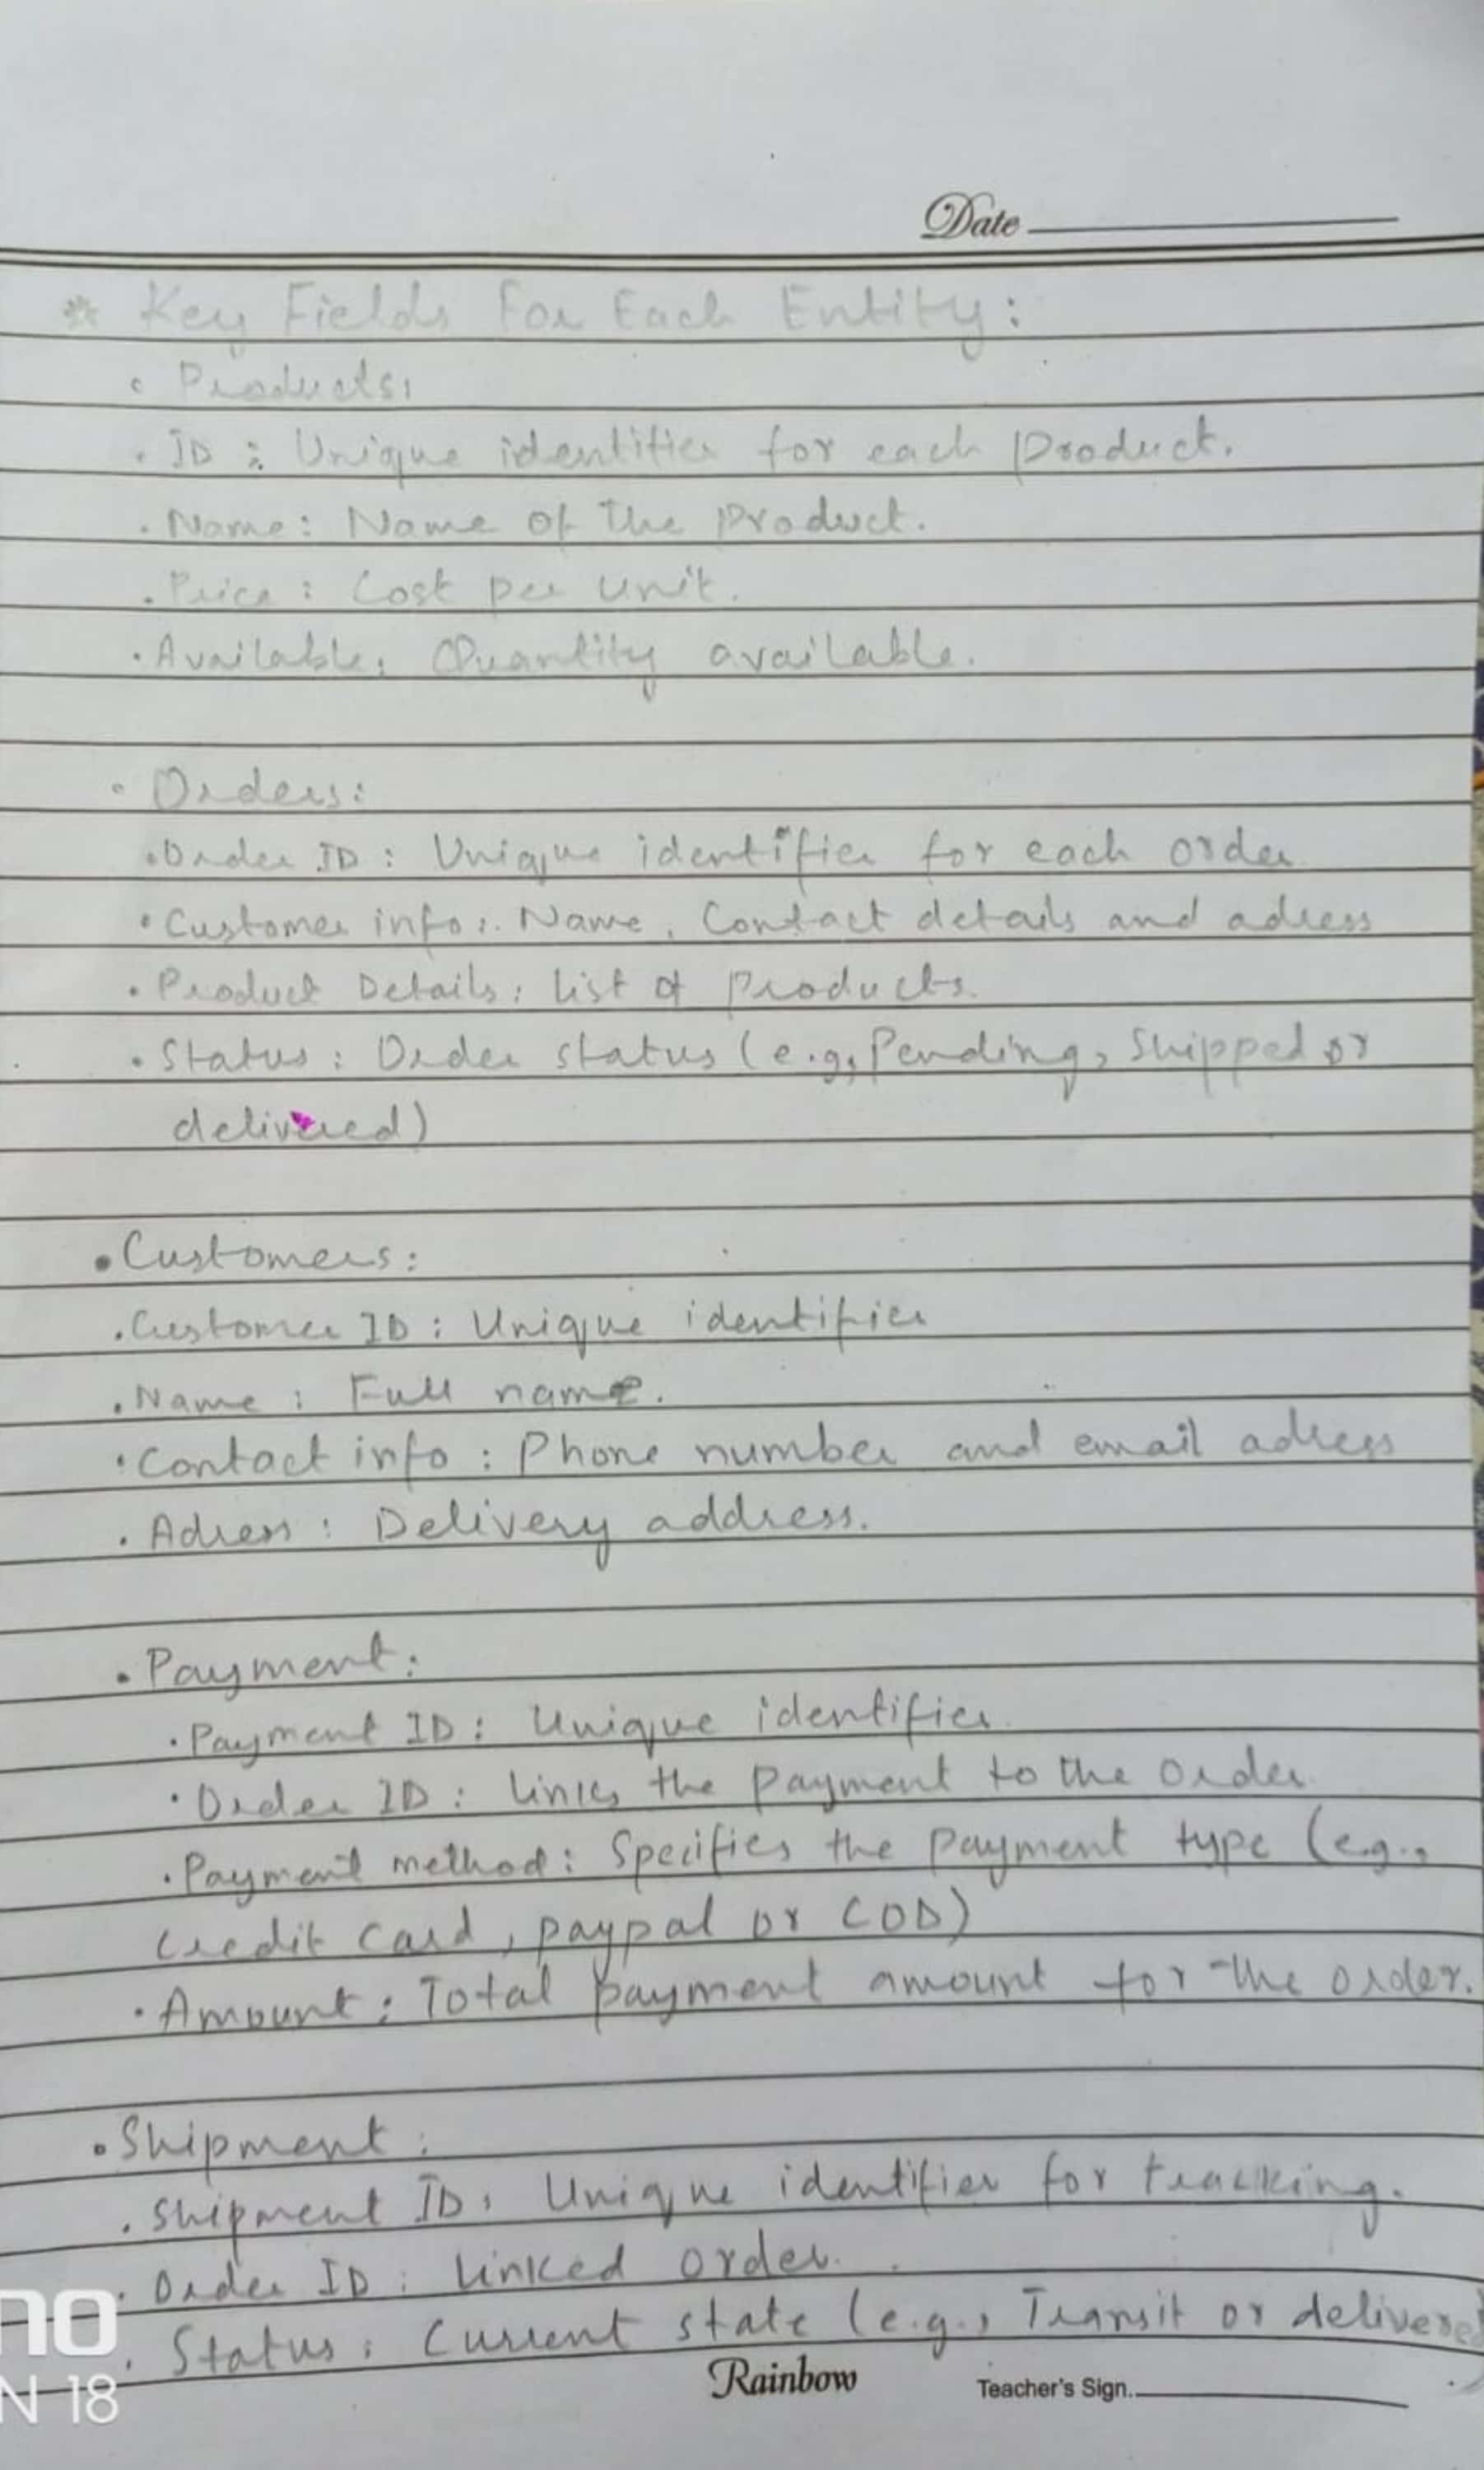 Date
* Key Fields For Each Entity:
◦ Products:
. ID : Unique identifier for each Product.
. Name: Name of The Product.
. Price : Cost per unit.
. Available: Quantity available.
◦ Orders:
. Order ID : Unique identifier for each order
• Customer info:. Name, Contact details and adress
. Product Details: list of Products.
• Status : Order status (e.g, Pending, Shipped or
delivered)
• Customers:
. Customer ID : Unique identifier
. Name : Full name.
• Contact info : Phone number and email adress
. Adress : Delivery address.
• Payment:
. Payment ID : Unique identifier.
• Order ID : links the Payment to the Order.
. Payment method : Specifies the Payment type (e.g.,
Credit Card, paypal or COD)
• Amount : Total payment amount for the order.
• Shipment :
. Shipment ID : Unique identifier for tracking.
. Order ID : linked order.
. Status : Current state (e.g., Transit or delivered
Rainbow
Teacher's Sign.
no
N 18